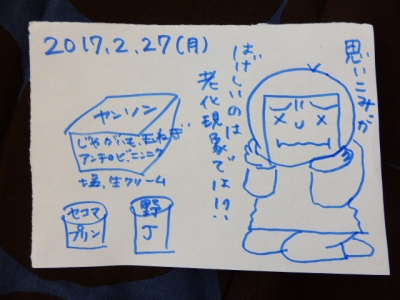 2017.2.27(月)
思いこみが
はげしいのは
老化現象では!?
ヤンソン
じゃがいも、玉ねぎ
アンチョビ、ニンニク
塩、生クリーム
セコマ
プリン
野
J